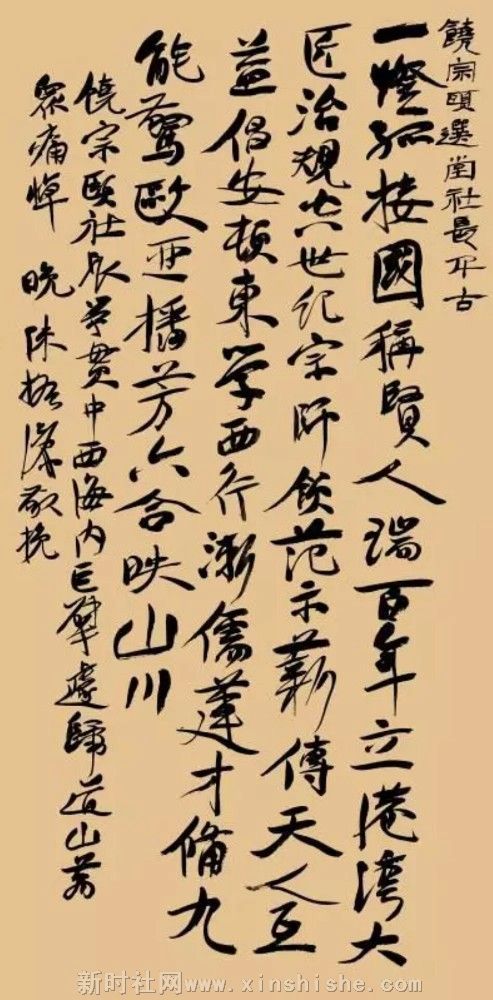 饒宗頤選堂社長千古
一燈孤接國稱賢人瑞百年立港灣大
匠治規世纪宗师范示薪傳天人互
益倡安頓東学西行漸儒蓮才備九
能驚歐亞播芳六合映山川
饶宗頤社长学贯中西海内巨擘遽歸道山
眾痛悼 晚 陈敬挽
新时社网www.xinshishe.com